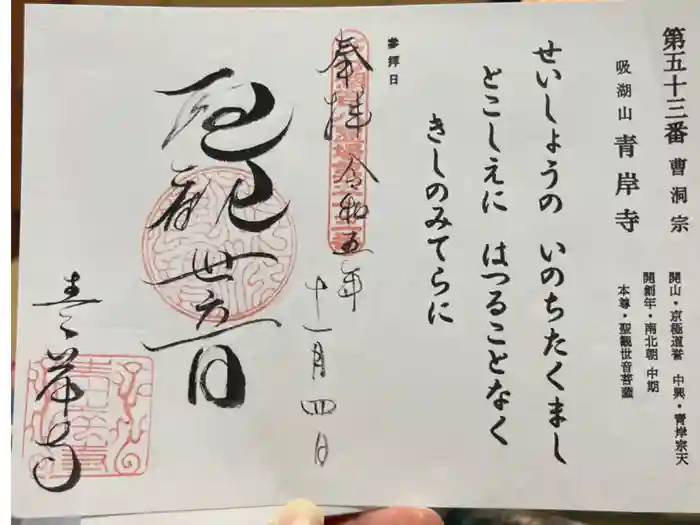 第五十三番 曹洞宗
吸湖山 青岸寺
開山・京極道誉 中興・青岸宗天
開創年・南北朝 中期
本尊・聖観世音菩薩
せいしょうの いのちたくまし
とこしえに はつることなく
きしのみてらに
参拝日
奉拝 令和五年
十一月四日
聖観世音
青岸寺